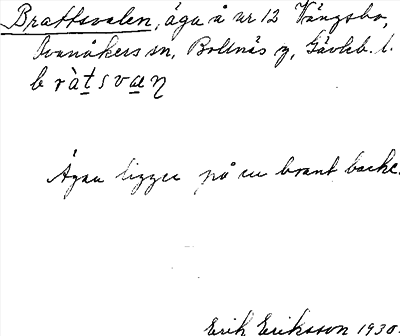 Brattsvalen, äga å nr 12 Vängsbo,
Svanåkers sn, Bollnäs g, Gävleb. l.
b r à t s v æ ŋ
Ägan ligger på en brant backe.
Erik Eriksson 1930.